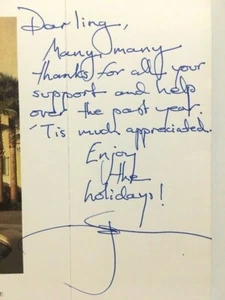 Darling,
Many, many
thanks for all your
support and help
over the past year.
'Tis much appreciated.
Enjoy
the
holidays!